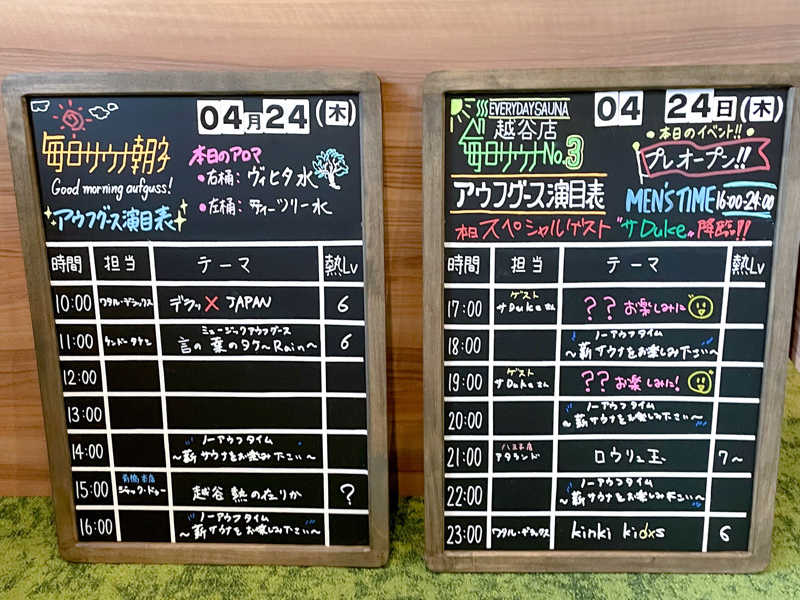 04月24(木)
毎日サウナ朝子
Good morning aufguss!
アウフグース演目表
本日のアロマ
・右桶：ヴィヒタ水
・左桶：ティーツリー水
時間 担当 テーマ 熱Lv
10:00 ワタル・デラックス デラッ×JAPAN 6
ミュージックアウフグース
11:00 言の葉のタケ〜Rain〜 6
12:00
13:00
ノーアウフタイム
14:00 〜薪サウナをお楽み下さい〜
前橋本店
15:00 ジャック・ドゥー 越谷 熱の在りか ?
ノーアウフタイム
16:00 〜薪サウナをお楽しみ下さい〜
EVERYDAYSAUNA
越谷店
毎日サウナNo.3
アウフグース演目表
04 24日(木)
・本日のイベント!!・
プレオープン!!
MEN'S TIME 16:00-24:00
本日スペシャルゲスト"サDuke"降臨!!
時間 担当 テーマ 熱Lv
ゲスト
17:00 サDukeさん ??お楽しみに
ノーアウフタイム
18:00 〜薪サウナをお楽しみ下さい〜
ゲスト
19:00 サDukeさん ??お楽しみに!
ノーアウフタイム
20:00 〜薪サウナをお楽しみ下さい〜
21:00 アタランド ロウリュ玉 7〜
ノーアウフタイム
22:00 〜薪サウナをお楽しみ下さい〜
23:00 ワタル・デラックス kinki kidxs 6